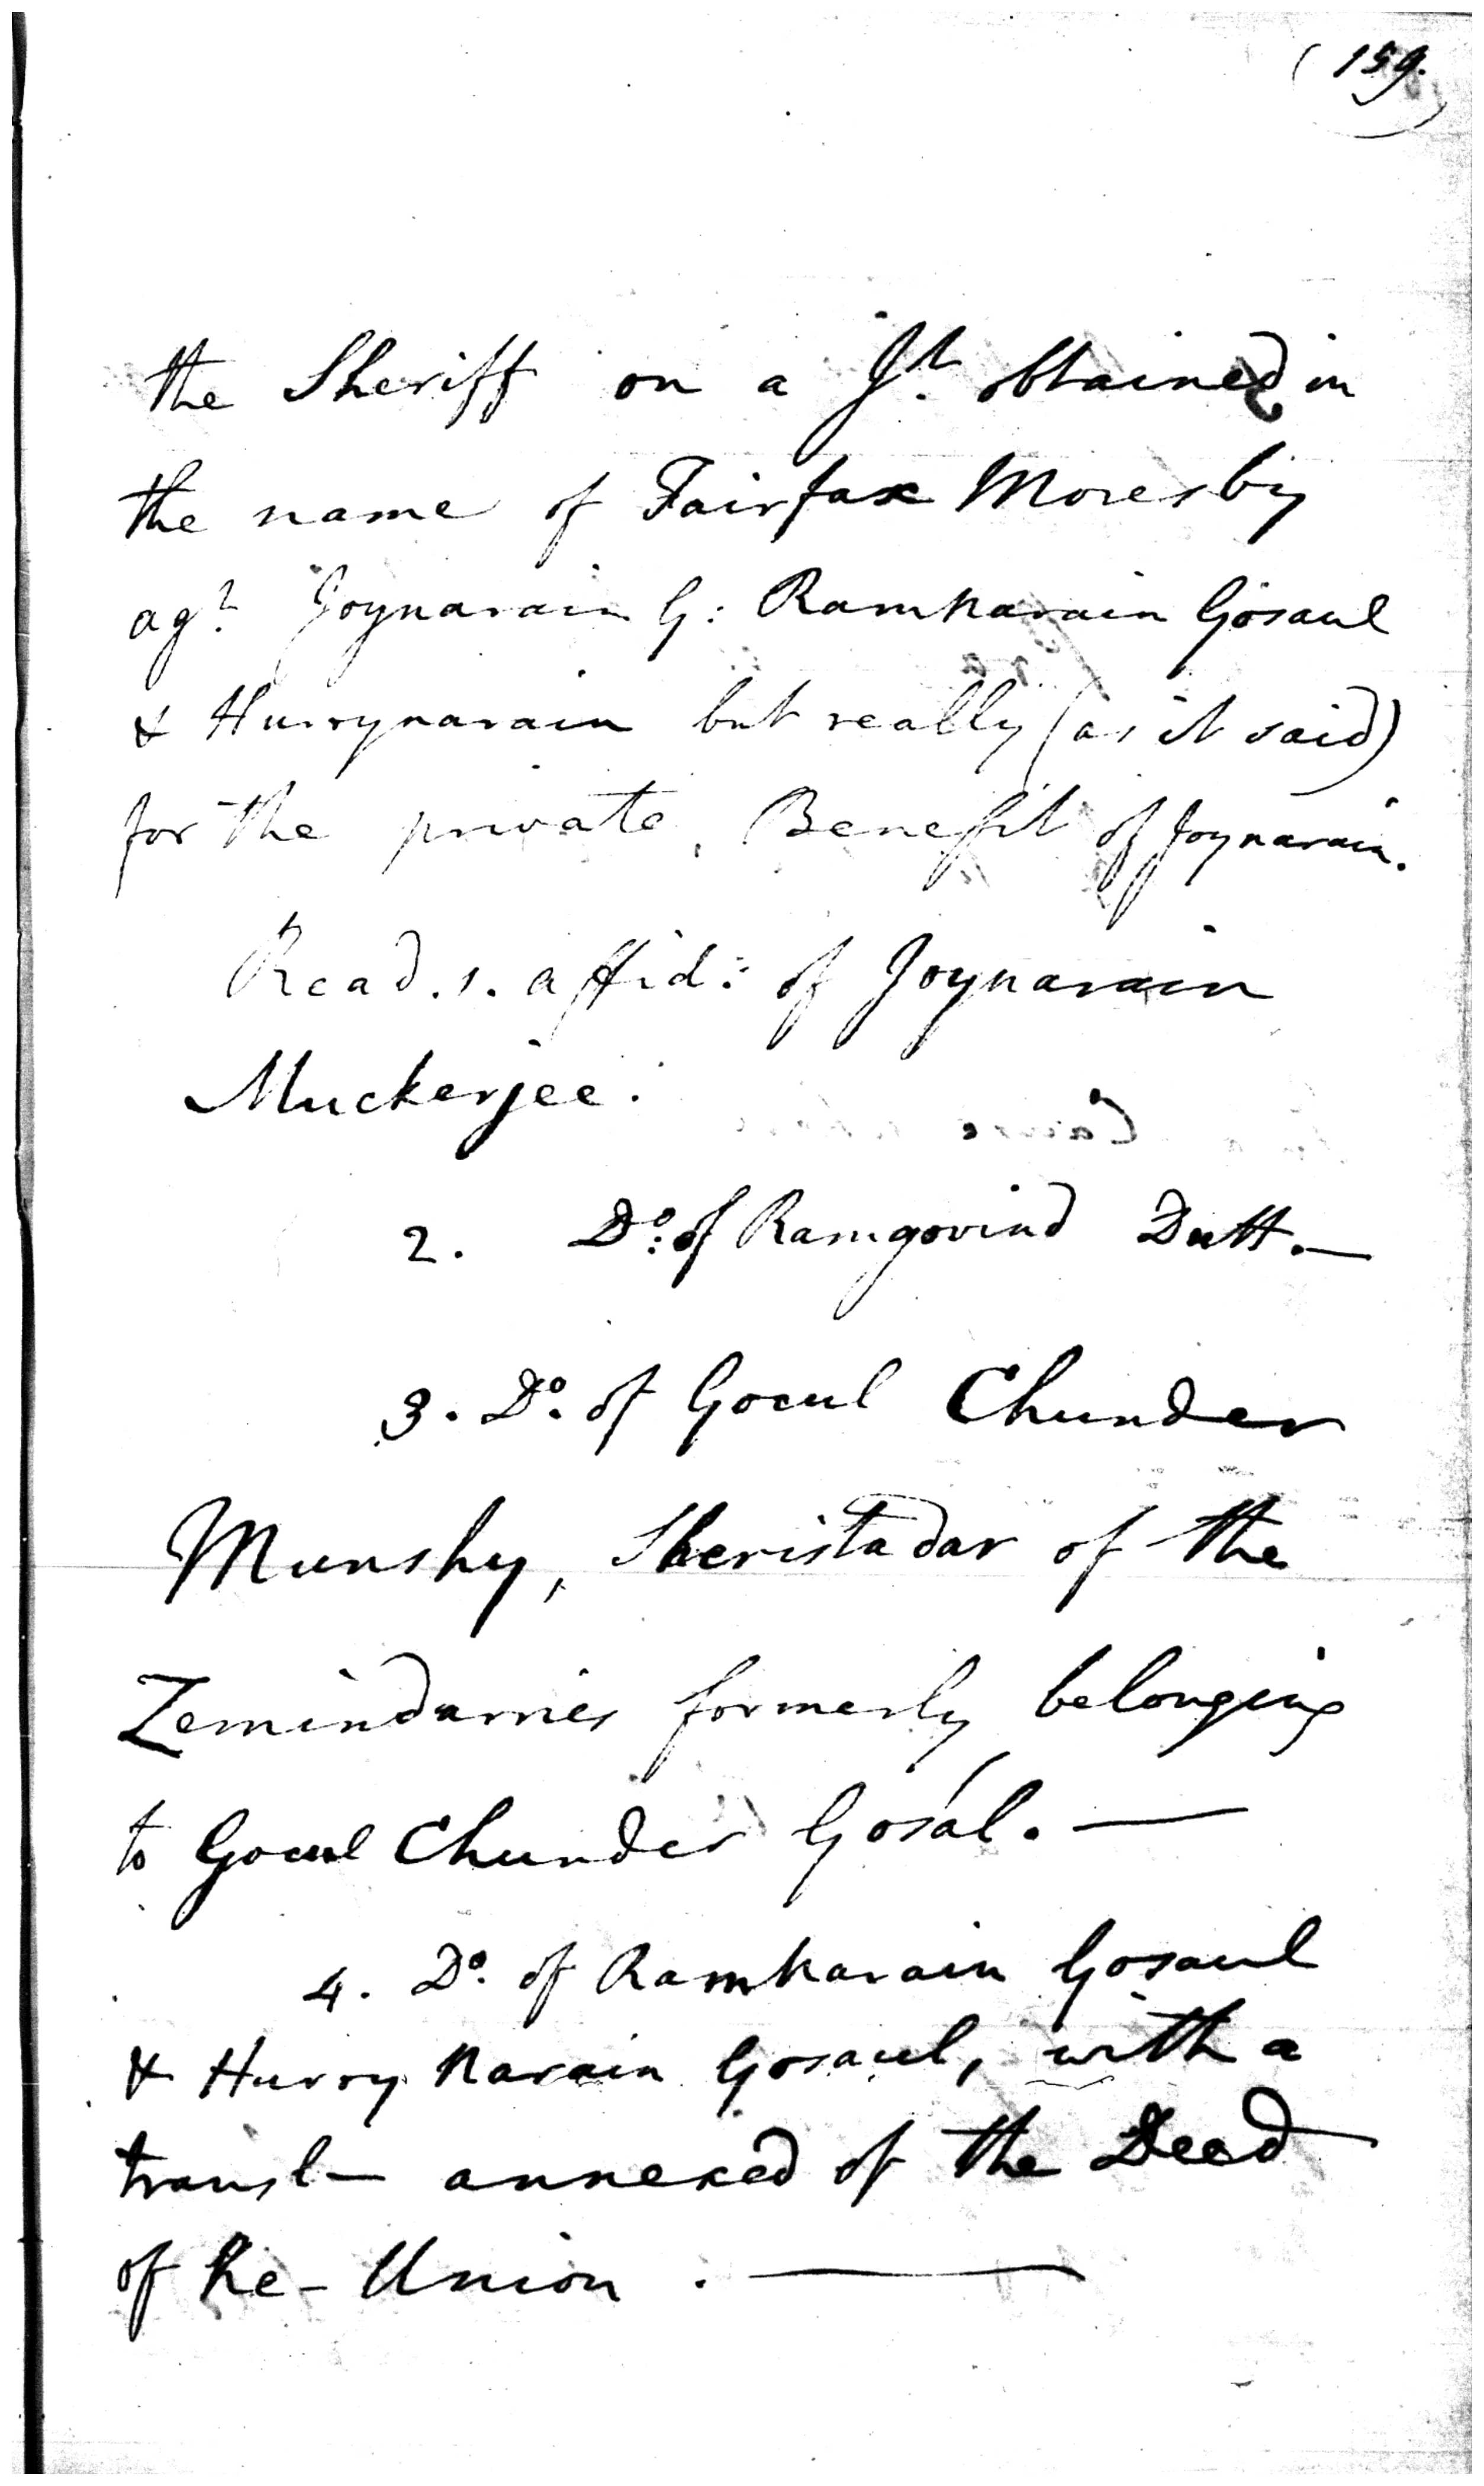 (159.)
the Sheriff on a Jt. obtained in
the name of Fairfax Moresby
agt. Joynarain G: Ramnarain Gosaul
& Hurrynarain but really (as it said)
for the private, Benefit of Joynarain.
Read. 1. affid: of Joynarain
Muckerjee.
2. Do: of Ramgovind Dutt.—
3. Do. of Gocul Chunder
Munshy, Sheristadar of the
Zemindarries formerly belonging
to Gocul Chunder Gosál.—
4. Do. of Ramnarain Gosaul
& Hurry Narain Gosaul, with a
transl— annexed of the Deed
of Re-Union.—